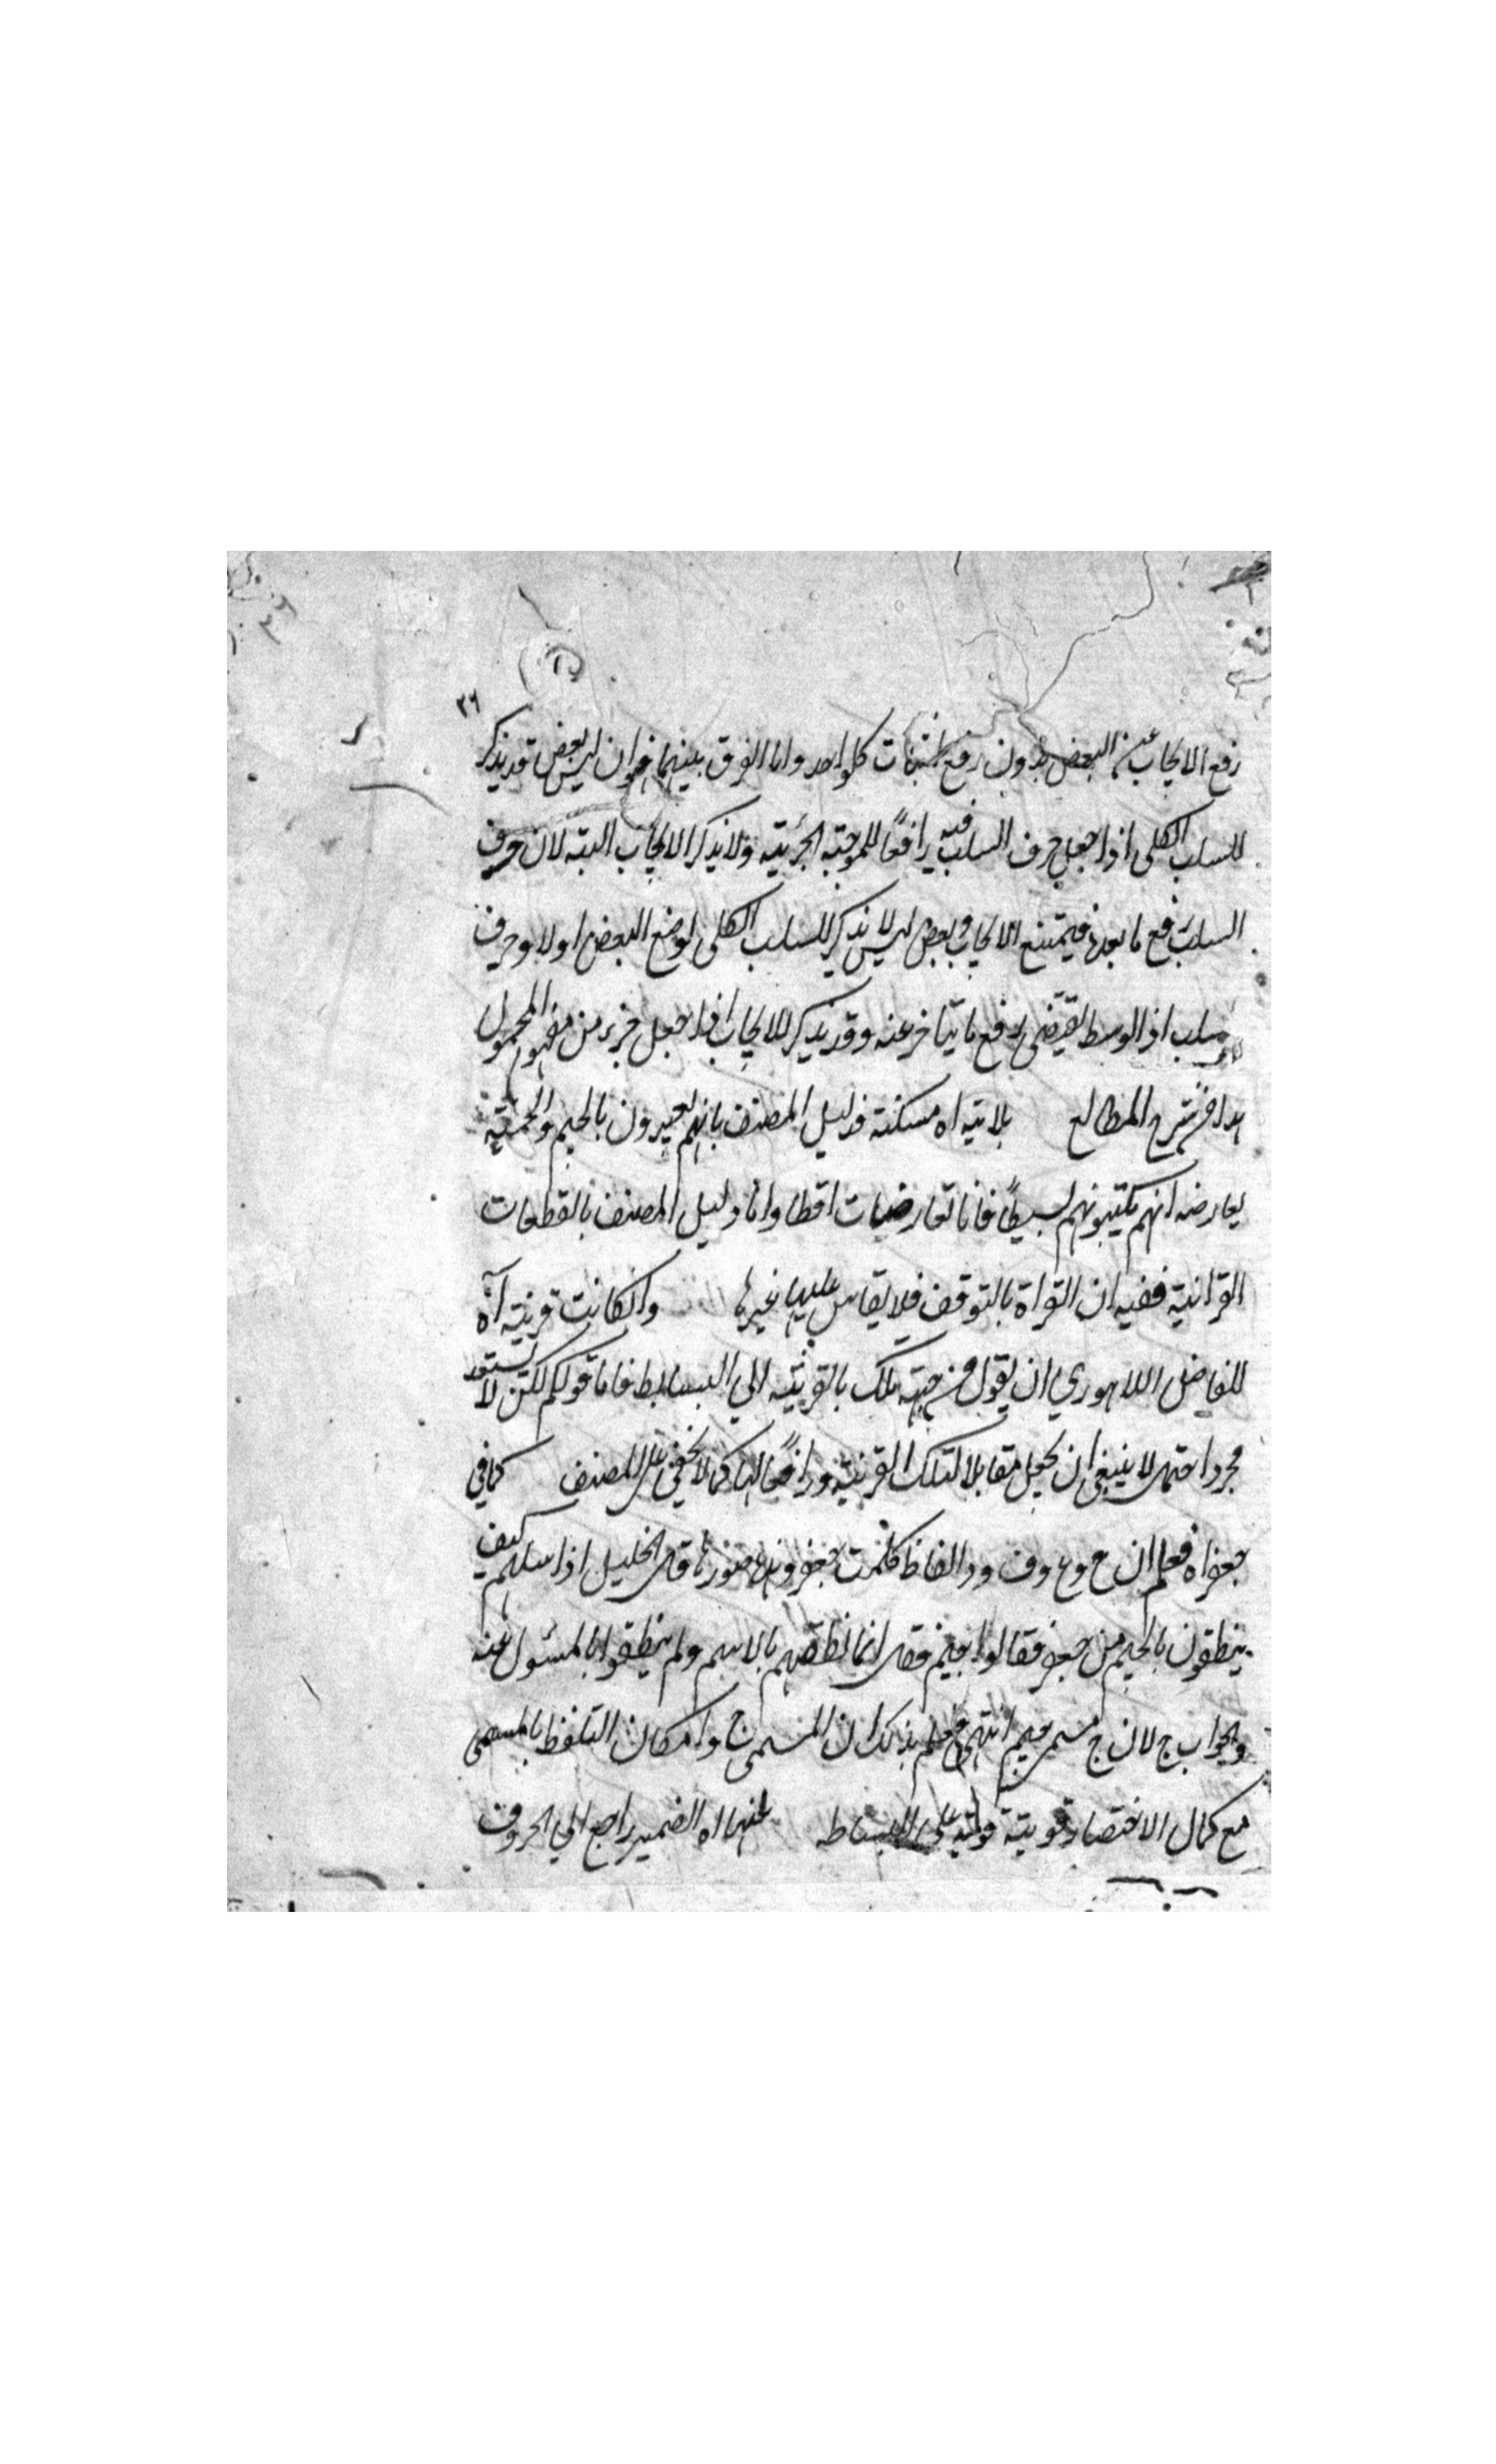 ٣٦
رفع الايجاب عن البعض بدون رفع اثبات كلواحد واما الفرق بينهما فهو ان ليس بعض قد يذكر
للسلب الكلى اذا جعل حرف السلب فيه رافعًا للموجبة الجزئية ولا يذكر الايجاب البته لان حرف
السلب رفع ما بعده فيمتنع الايجاب وبعض ليس لا يذكر للسلب الكلى لوضع البعض اولا وحرف
سلب اذ الوسط يقتضى رفع ما يتاخر عنه وقد يذكر للايجاب اذا جعل جزء من مفهوم المحمول
هذا فى شرح المطالع بلاتيه اه مسكنة فدليل المصنف بانهم يعبرون بالجيم والجيمية
يعارضه انهم يكتبونهم بسيطًا فاما تعارضات اقطا واما دليل المصنف بالقطعات
القرانية ففيه ان القراة بالتوقف فلا يقاس عليها غيرها وانكانت قرينة آه
للفاضل اللاهوري ان يقول من جهة تلك بالقرينة الي البسايط فاما قولكم لكن لا يستعد
مجرد احتمال لا ينبغى ان يجعل مقابلا لتلك القرينة ورافعًا لها كما لا يخفى على المصنف كما في
جعفر اه فعلم ان ج وع وف ور الفاظ فكلمت جعفر وبها قال الخليل اذا سالهم كيف
ينطقون بالجيم من جعفر فقالوا جيم فقال انما نطقتم بالاسم ولم ينطقوا بالمسئول عنه
والجواب ج لان ج مسمى جيم انتهى فعلم بذلك ان المسمى ج وامكان التلفظ بالمسمى
مع كمال الاختصار قرينة قوية على البساطه عنها اه الضمير راجع الي الحروف